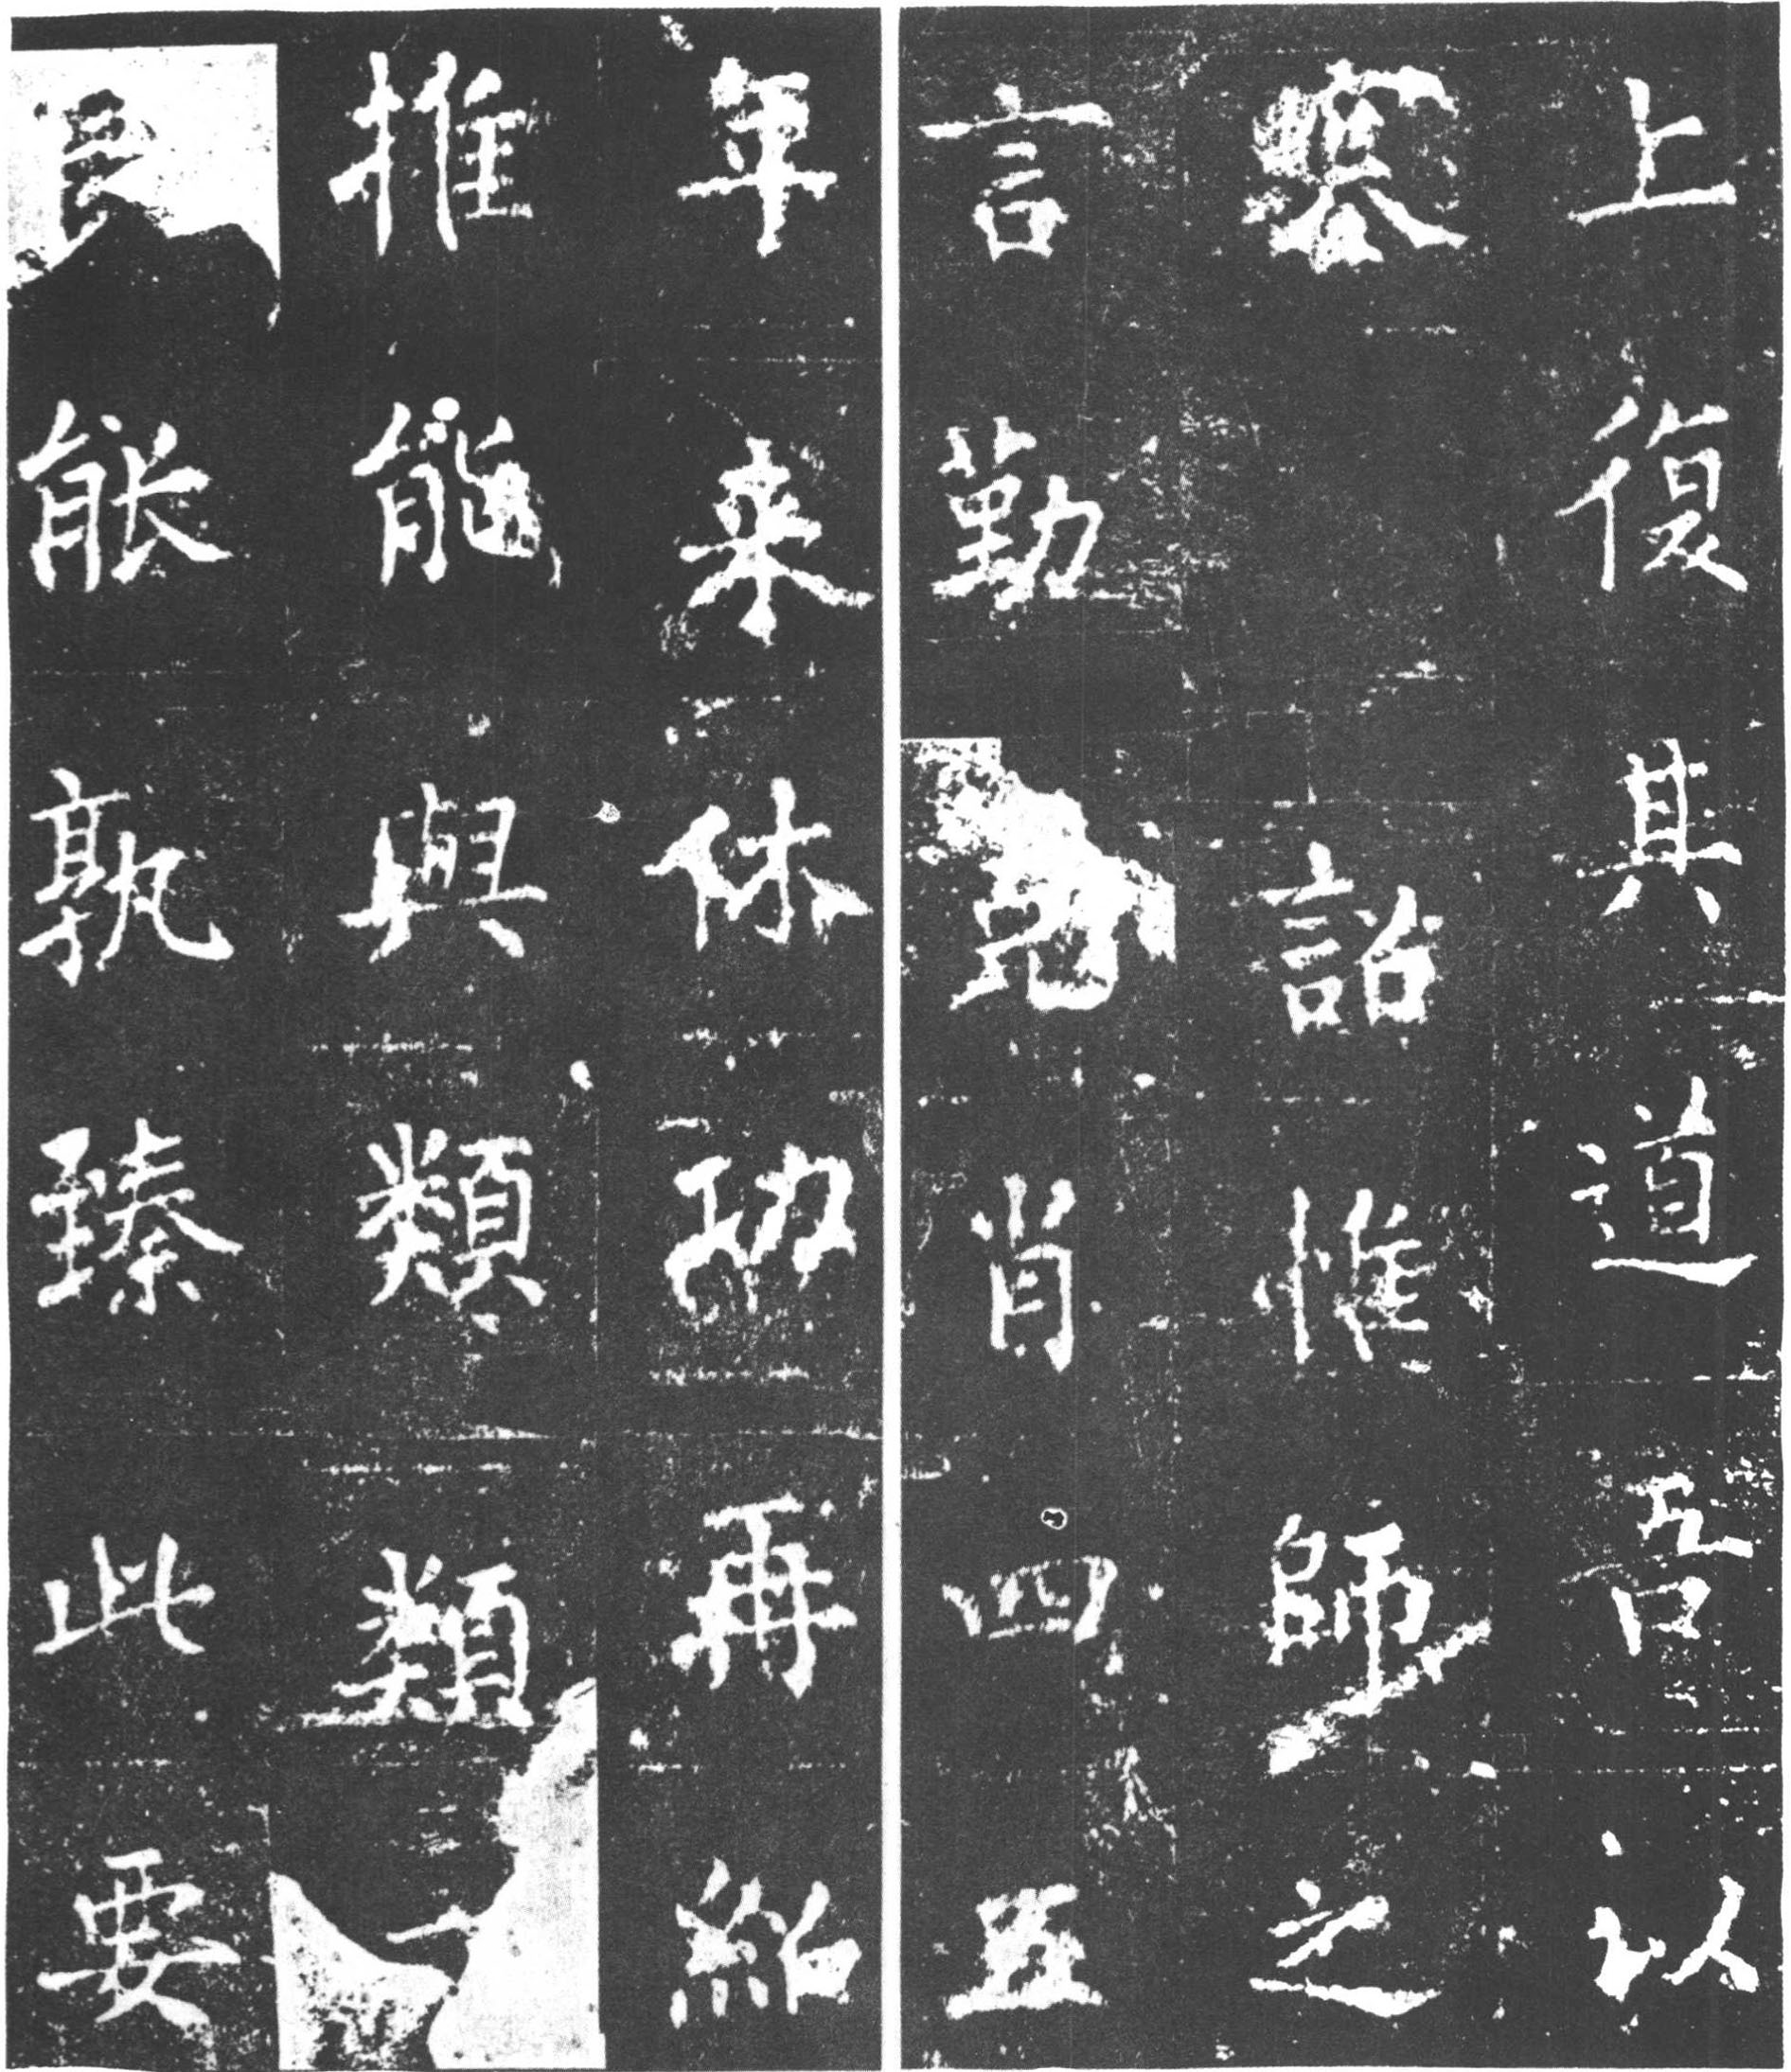 上復其道吾以
塞詔惟師之
言勤宛肖四五
年来休功再紹
推能與類類
良能孰臻此要